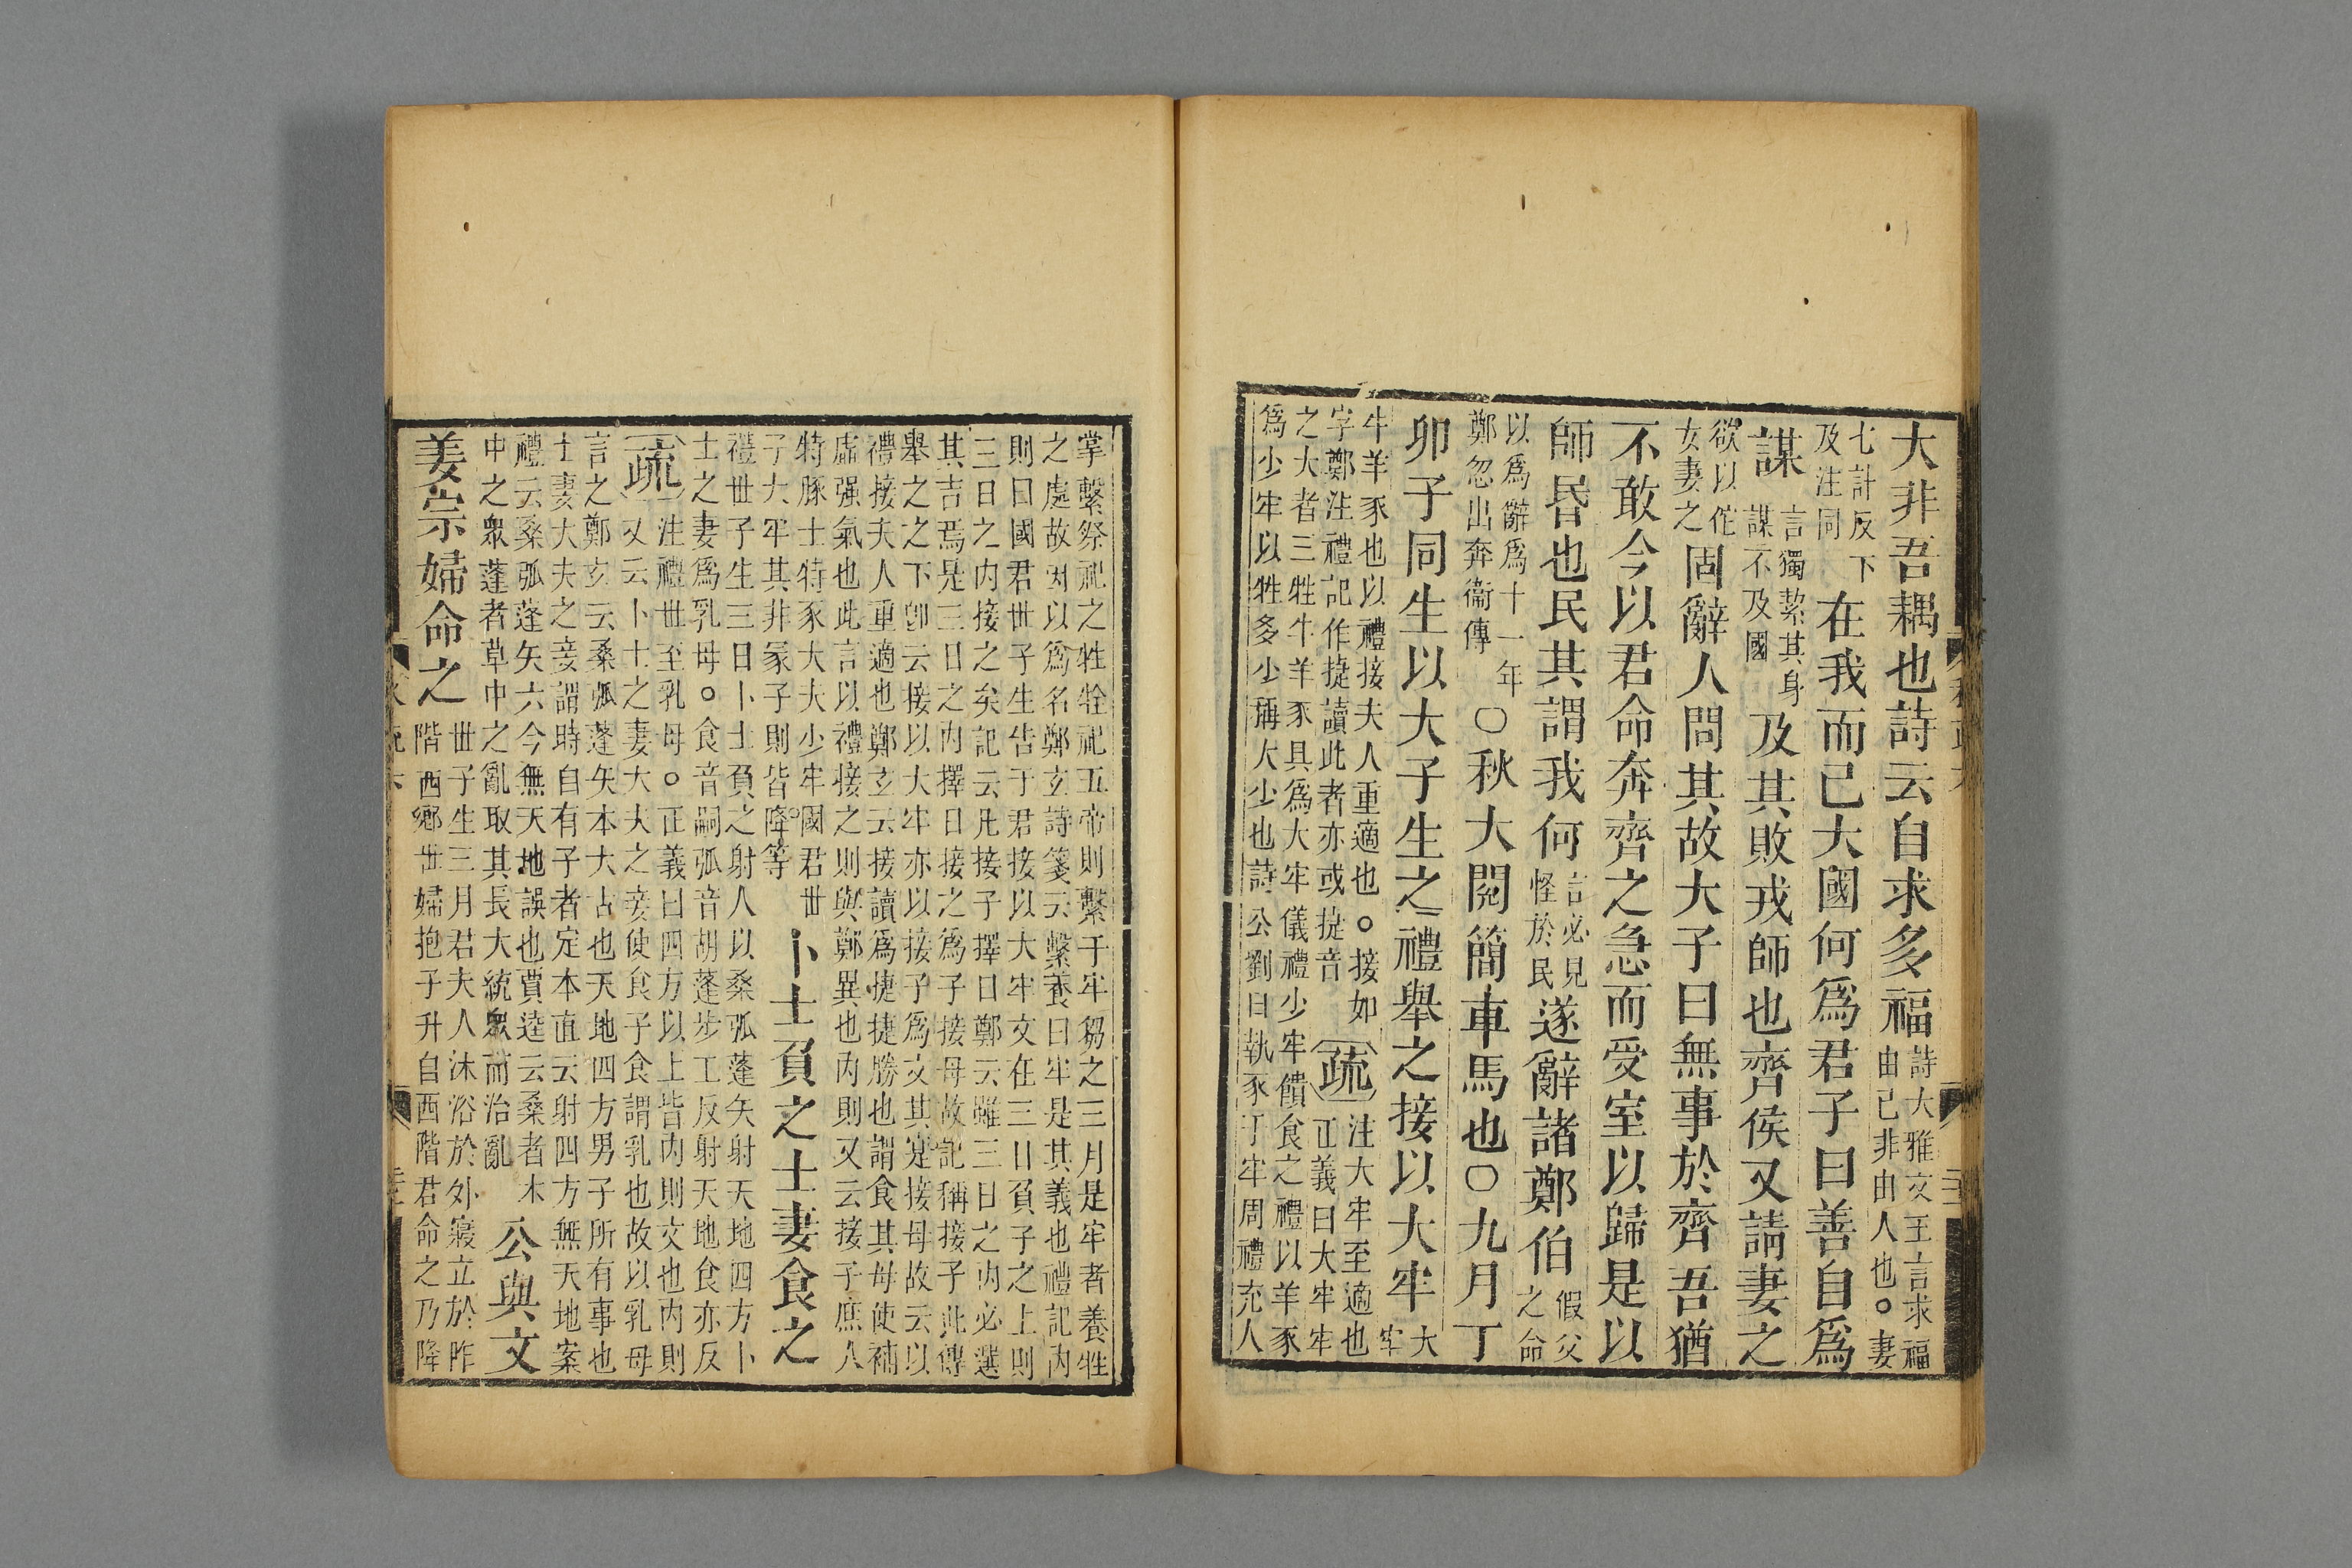 大非吾耦也詩云自求多福詩大雅文王言求福由己非由人也。妻
七計反下及注同在我而已大國何爲君子曰善自爲
謀言獨絜其身謀不及國及其敗戎師也齊侯又請妻之
欲以佗女妻之固辭人問其故大子曰無事於齊吾猶
不敢今以君命奔齊之急而受室以歸是以
師昏也民其謂我何言必見怪於民遂辭諸鄭伯假父之命
以爲辭爲十一年鄭忽出奔衞傳〇秋大閱簡車馬也〇九月丁
卯子同生以大子生之禮舉之接以大牢大牢
牛羊豕也以禮接夫人重適也。接如字鄭注禮記作捷讀此者亦或捷音疏注大牢至適也正義曰大牢牢
之大者三牲牛羊豕具爲大牢儀禮少牢饋食之禮以羊豕
爲少牢以牲多少稱大少也詩公劉曰執豕于牢周禮充人
掌繫祭祀之牲牷祀五帝則繫于牢芻之三月是牢者養牲
之處故因以爲名鄭玄詩箋云繫養曰牢是其義也禮記內
則曰國君世子生告于君接以大牢文在三日負子之上則
三日之內接之矣記云凡接子擇日鄭云雖三日之內必選
其吉焉是三日之內擇日接之爲子接母故記稱接子此傳
舉之之下卽云接以大牢亦以接子爲文其寔接母故云以
禮接夫人重適也鄭玄云接讀爲捷捷勝也謂食其母使補
虛强氣也此言以禮接之則與鄭異也內則又云接子庶人
特豚士特豕大夫少牢國君世子大牢其非冢子則皆降。等卜士負之士妻食之
禮世子生三日卜士負之射人以桑弧蓬矢射天地四方卜
士之妻爲乳母。食音嗣弧音胡蓬步工反射天地食亦反
疏注禮世至乳母。正義曰四方以上皆內則文也內則又云卜士之妻大夫之妾使食子食謂乳也故以乳母
言之鄭玄云桑弧蓬矢本大古也天地四方男子所有事也
士妻大夫之妾謂時自有子者定本直云射四方無天地案
禮云桑弧蓬矢六今無天地誤也賈逵云桑者木
中之衆蓬者草中之亂取其長大統衆而治亂公與文
姜宗婦命之世子生三月君夫人沐浴於外寢立於阼階西鄉世婦抱子升自西階君命之乃降